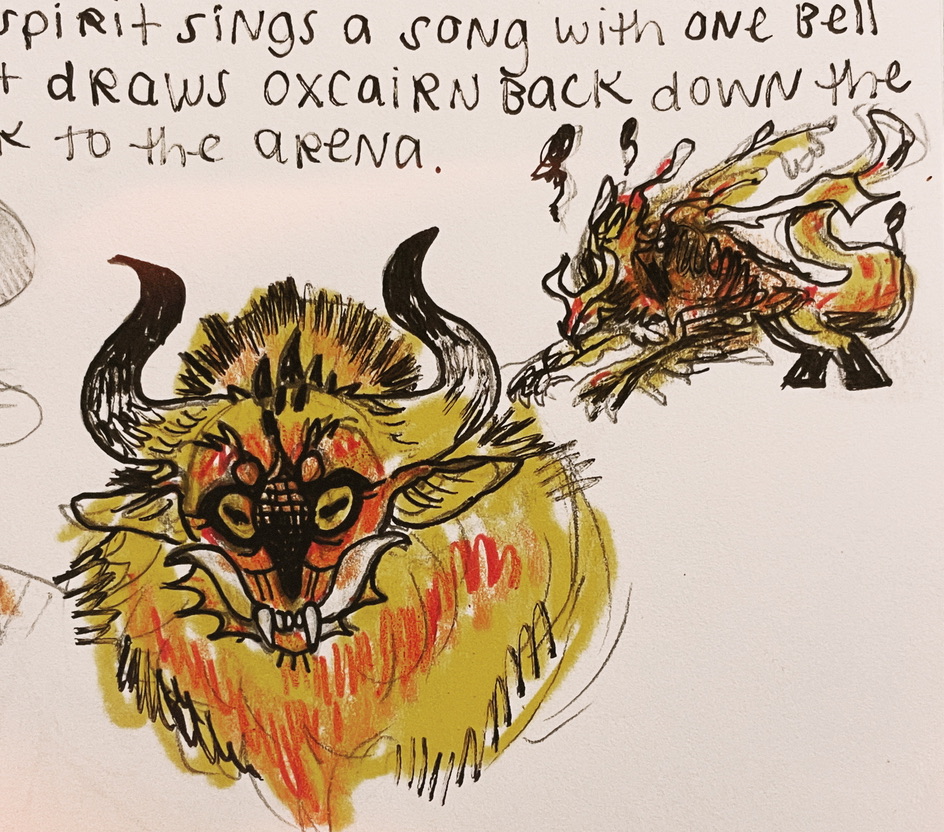 spirit sings a song with one Bell
t draws oxcairn Back down the
k to the arena.